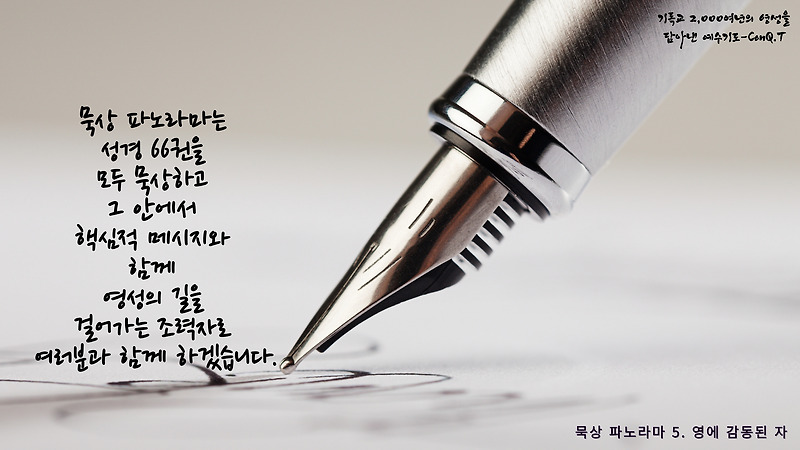 기독교 2,000여년의 영성을
담아낸 예수기도-ConQ.T
묵상 파노라마는
성경 66권을
모두 묵상하고
그 안에서
핵심적 메시지와
함께
영성의 길을
걸어가는 조력자로
여러분과 함께 하겠습니다.
묵상 파노라마 5. 영에 감동된 자